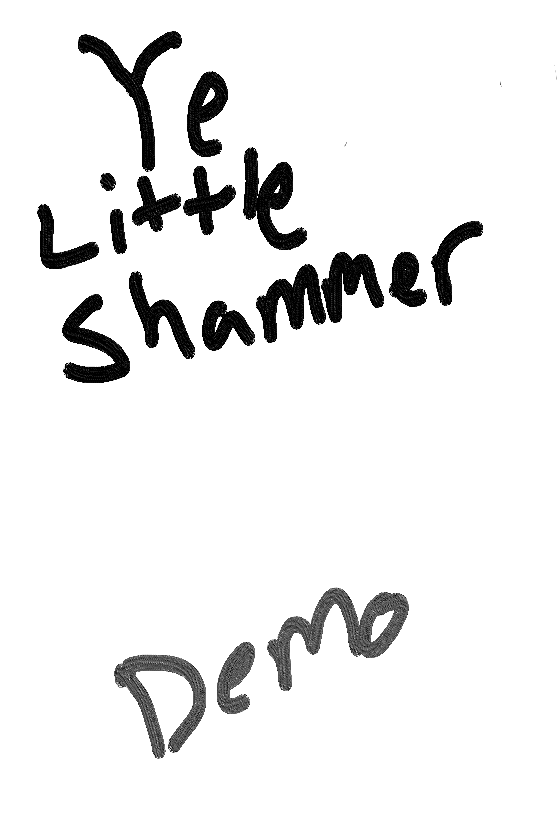 Ye
Little
Shammer
Demo